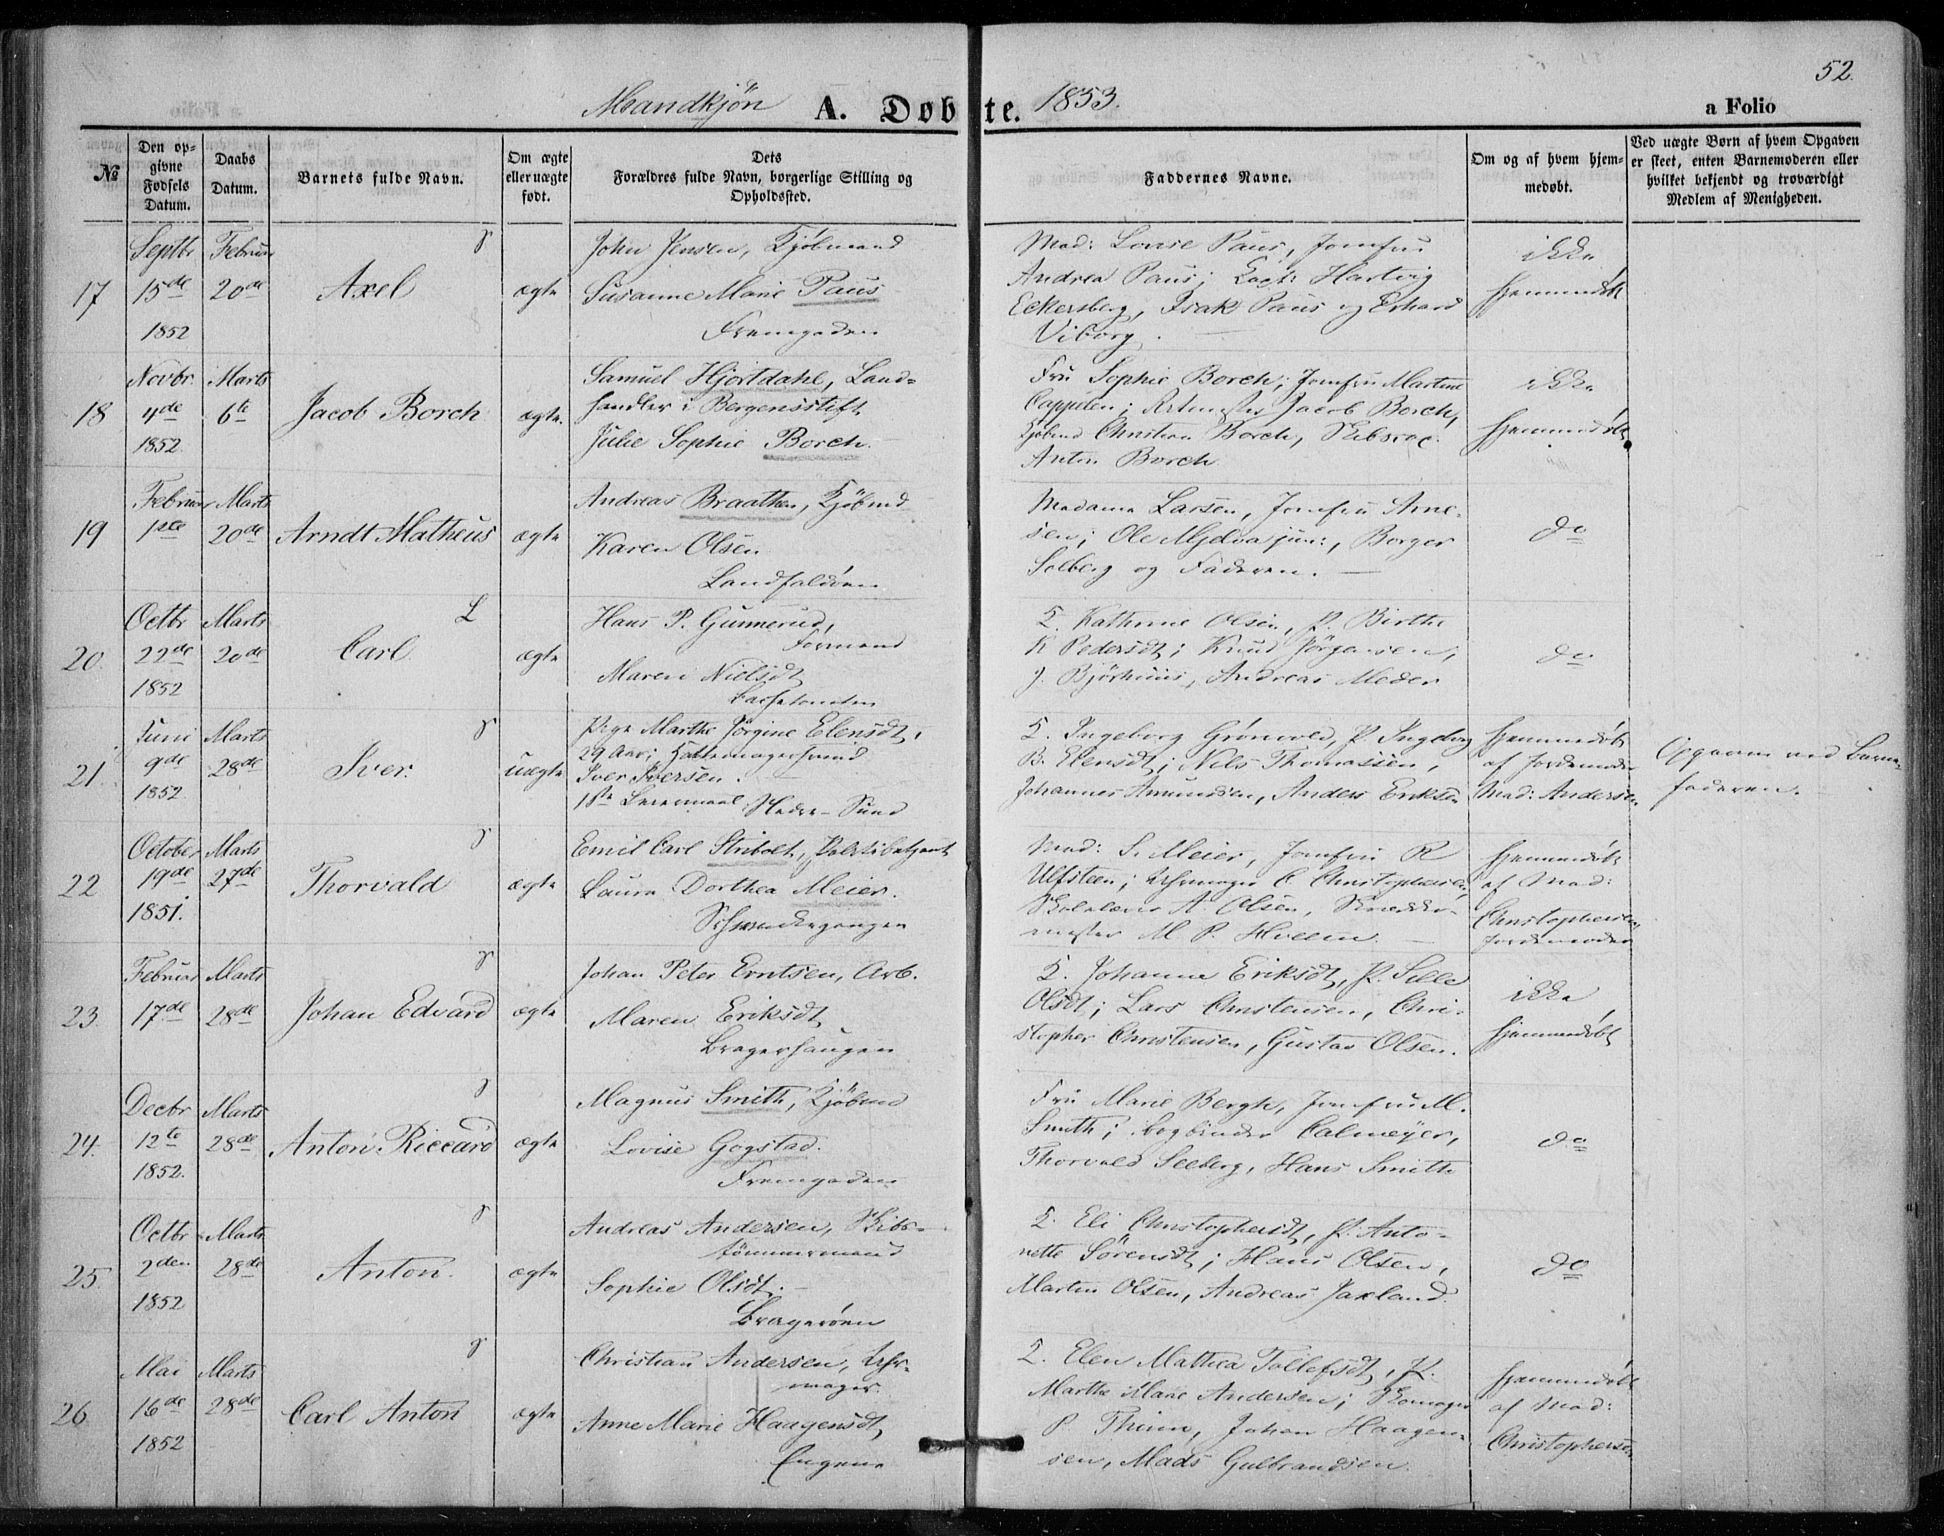 52.
Mandkjön A. Døbte. 1853. a Folio
№
Den opgivne Fødsels Datum.
Daabs Datum.
Barnets fulde Navn.
Om ægte eller uægte født.
Dets Forældres fulde Navn, borgerlige Stilling og Opholdssted.
Faddernes Navne.
Om og af hvem hjemmedøbt.
Ved uægte Børn af hvem Opgaven er skeet, enten Barnemoderen eller hvilket bekjendt og troværdigt Medlem af Menigheden.
17
Septbr 15de 1852
Februar 20de
Axel
ægte
John Jensen, Kjöbmand
Susanne Marie Paus
Fremgaden
Mad: Lovise Paus, Jomfru
Andrea Paus; Hartvig
Eckersberg, Isak Paus og Erhard
Viborg.
ikke
hjemmedöbt
18
Novbr. 4de 1852.
Marts 6te
Jacob Borch
ægte.
Samuel Hjortdahl, Land=
handler i Bergensstift
Julie Sophie Borch.
Fru Sophie Borch; Jomfru Martine
Cappelen; Jacob Borch,
Kjöbmd Christian Borch, Skibsrac.
Anton Borch
ikke
hjemmedöbt
19
Februar 1ste
Marts 20de
Arndt Matheus
ægte
Andreas Braathen, Kjöbmd
Karen Olsen
Landfaldöen
Madame Larsen, Jomfru Arne-
sen; Ole Mjelva jun:, Borger
Solberg og Faderen. —
do
20.
Octbr 22de 1852
Marts 20de
Carl
L
ægte
Hans P. Gunnerud,
Formand
Maren Nielsdt
K. Kathrine Olsen, P. Birthe
K Pedersdt; Knud Jörgensen,
J. Björhuus, Andreas Meder
do
21.
Juni 9de 1852.
Marts 28de
Iver.
uægte
Pige Marthe Jörgine Elensdt,
29 Aar; Hattemagersvend
Iver Iversen.
1ste Leiermaal Hedre-Sund
K. Ingeborg Grönvold, P. Ingeborg
B. Elensdt; Nils Thomassen,
Johannes Amundsen, Anders Eriksen
hjemmedöbt
af Jordemoder
Mad: Andersen
Opgaven ved Barne-
faderen.
22
October 19de 1851.
Marts 27de
Thorvald
ægte
Emil Carl Stribolt, Politibetjent
Laura Dorthea Meier.
Mad: S. Meier, Jomfru R
Ulfsteen; Uhrmager C. Christophersen,
Skolelærer A. Olsen, Snedker-
mester M P. Hveem.
hjemmedöbt
af Mad:
Christophersen,
Jordemoder
23.
Februar 17de
Marts 28de
Johan Edvard
ægte
Johan Peter Erntsen, Arb.
Maren Eriksdt
Bragerhaugen
K. Johanne Eriksdt, P. Sille
Olsdt; Lars Christensen, Chri-
stopher Christensen, Gustav Olsen.
ikke
hjemmedöbt
24.
Decbr 12te 1852.
Marts 28de
Anton Riccard
ægte
Magnus Smith, Kjöbmd
Lovise Gogstad.
Fremgaden
Fru Marie Bergh, Jomfru M.
Smith; Bogbinder Calmeyer,
Thorvald Seeberg, Hans Smith
do
25.
Octbr 2den 1852
Marts 28de
Anton.
ægte
Andreas Andersen, Skibs-
tömmermand
Sophie Olsdt. —
Bragerøen
K. Eli Christophersdt, P. Anto-
nette Sörensdt; Hans Olsen,
Martin Olsen, Andreas Jaxland.
do
26
Mai 16de 1852
Marts 28de
Carl Anton
ægte
Christian Andersen, Uhr-
mager.
Anne Marie Haagensdt
Engene
K. Elen Mathea Tollefsdt, P.
Marthe Marie Andersen; Skomager
P. Thiim, Johan Haagen-
sen, Mads Gulbrandsen.
hjemmedöbt
af Mad:
Christophersen